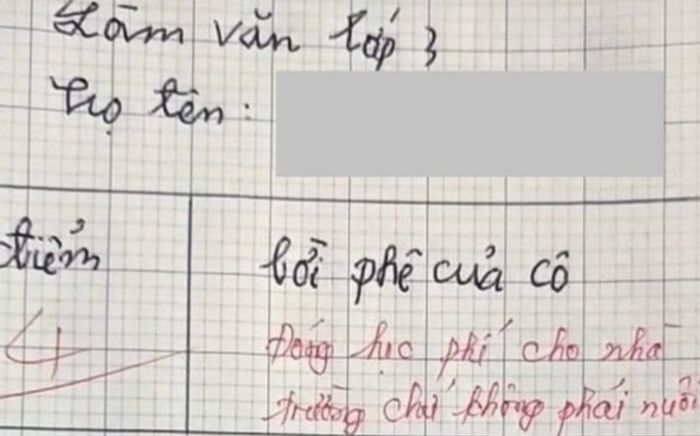 Làm văn lớp 3
Họ tên:
Điểm
Lời phê của cô
4
Đóng học phí cho nhà
trường chứ không phải nuôi